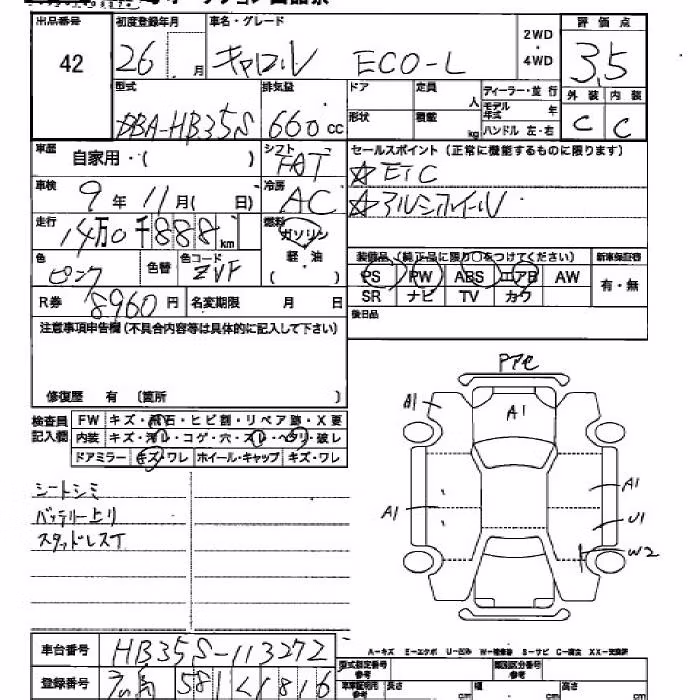 出品番号 初度登録年月 車名・グレード 2WD・4WD 評価点
42 26 月 キャロル ECO-L 3.5
型式 排気量 ドア 定員 人 ディーラー・並行 外装 内装
DBA-HB35S 660 cc 形状 積載 kg モデル年式 年 C C
ハンドル 左・右
車歴 自家用・( ) シフト FAT セールスポイント(正常に機能するものに限ります)
車検 9年11月( 日) 冷房 AC ☆ETC
☆アルミホイール
走行 14万0千888km 燃料 ガソリン
軽・油
( )
色 ピンク 色替 色コード ZVF
装備品(純正品に限り○をつけてください) 新車保証書
PS PW ABS エアB AW 有・無
SR ナビ TV カワ
R券 8960円 名変期限 月 日 後日品
注意事項申告欄(不具合内容等は具体的に記入して下さい)
修復歴 有 〔箇所 〕
検査員記入欄 FW キズ・飛石・ヒビ割・リペア跡・X要
内装 キズ・汚レ・コゲ・穴・スレ・ヘタリ・破レ
ドアミラー キズ・ワレ ホイール・キャップ キズ・ワレ
シートシミ
バッテリー上り
スタッドレスT
A1 A1
A1 A1
U1
W2
車台番号 HB35S-113272
A-キズ E-エクボ U-凹み W-補修跡 S-サビ C-腐食 XX-交換済
登録番号 581 1816
型式指定番号 参考 類別区分番号 参考
車車証明用 参考 長さ cm 幅 cm 高さ cm